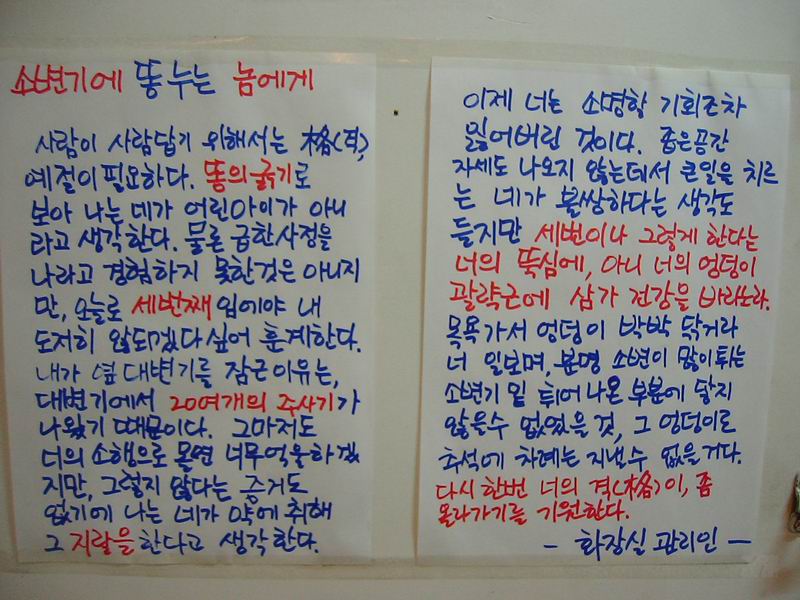 소변기에 똥 누는 놈에게
사람이 사람답기 위해서는 格(격),
예절이 필요하다. 똥의 굵기로
보아 나는 네가 어린아이가 아니
라고 생각한다. 물론 급한사정을
나라고 경험하지 못한것은 아니지
만, 오늘로 세번째 임에야 내
도저히 않되겠다 싶어 훈계한다.
내가 옆 대변기를 잠근 이유는,
대변기에서 20여개의 주사기가
나왔기 때문이다. 그마저도
너의 소행으로 몰면 너무 억울하겠
지만, 그렇지 않다는 증거도
없기에 나는 네가 약에 취해
그 지랄을 한다고 생각한다.
이제 너는 소명할 기회조차
잃어버린 것이다. 좁은공간
자세도 나오지 않는데서 큰일을 치르
는 네가 불쌍하다는 생각도
들지만 세번이나 그렇게 한다는
너의 뚝심에, 아니 너의 엉덩이
괄략근에 삼가 건강을 바라노라.
목욕가서 엉덩이 박박 닦거라
너 일보며, 분명 소변이 많이 튀는
소변기 밑 튀어 나온 부분에 닿지
않을수 없었을 것, 그 엉덩이로
추석에 차례는 지낼수 없을거다.
다시 한번 너의 격(格)이, 좀
올라가기를 기원한다.
- 화장실 관리인 -